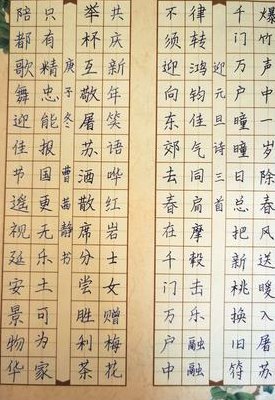 爆竹声中一岁除春风送暖入屠苏
千门万户曈曈日总把新桃换旧符
迎元旦诗三首
律转鸿钧佳气同肩摩毂击乐融融
不须迎向东郊去春在千门万户中
共庆新年笑语哗红岩士女赠梅花
举杯互敬屠苏酒散席分尝胜利茶
庚子冬 曹静书
只有精忠能报国更无乐土可为家
陪都歌舞迎佳节遥视延安景物华